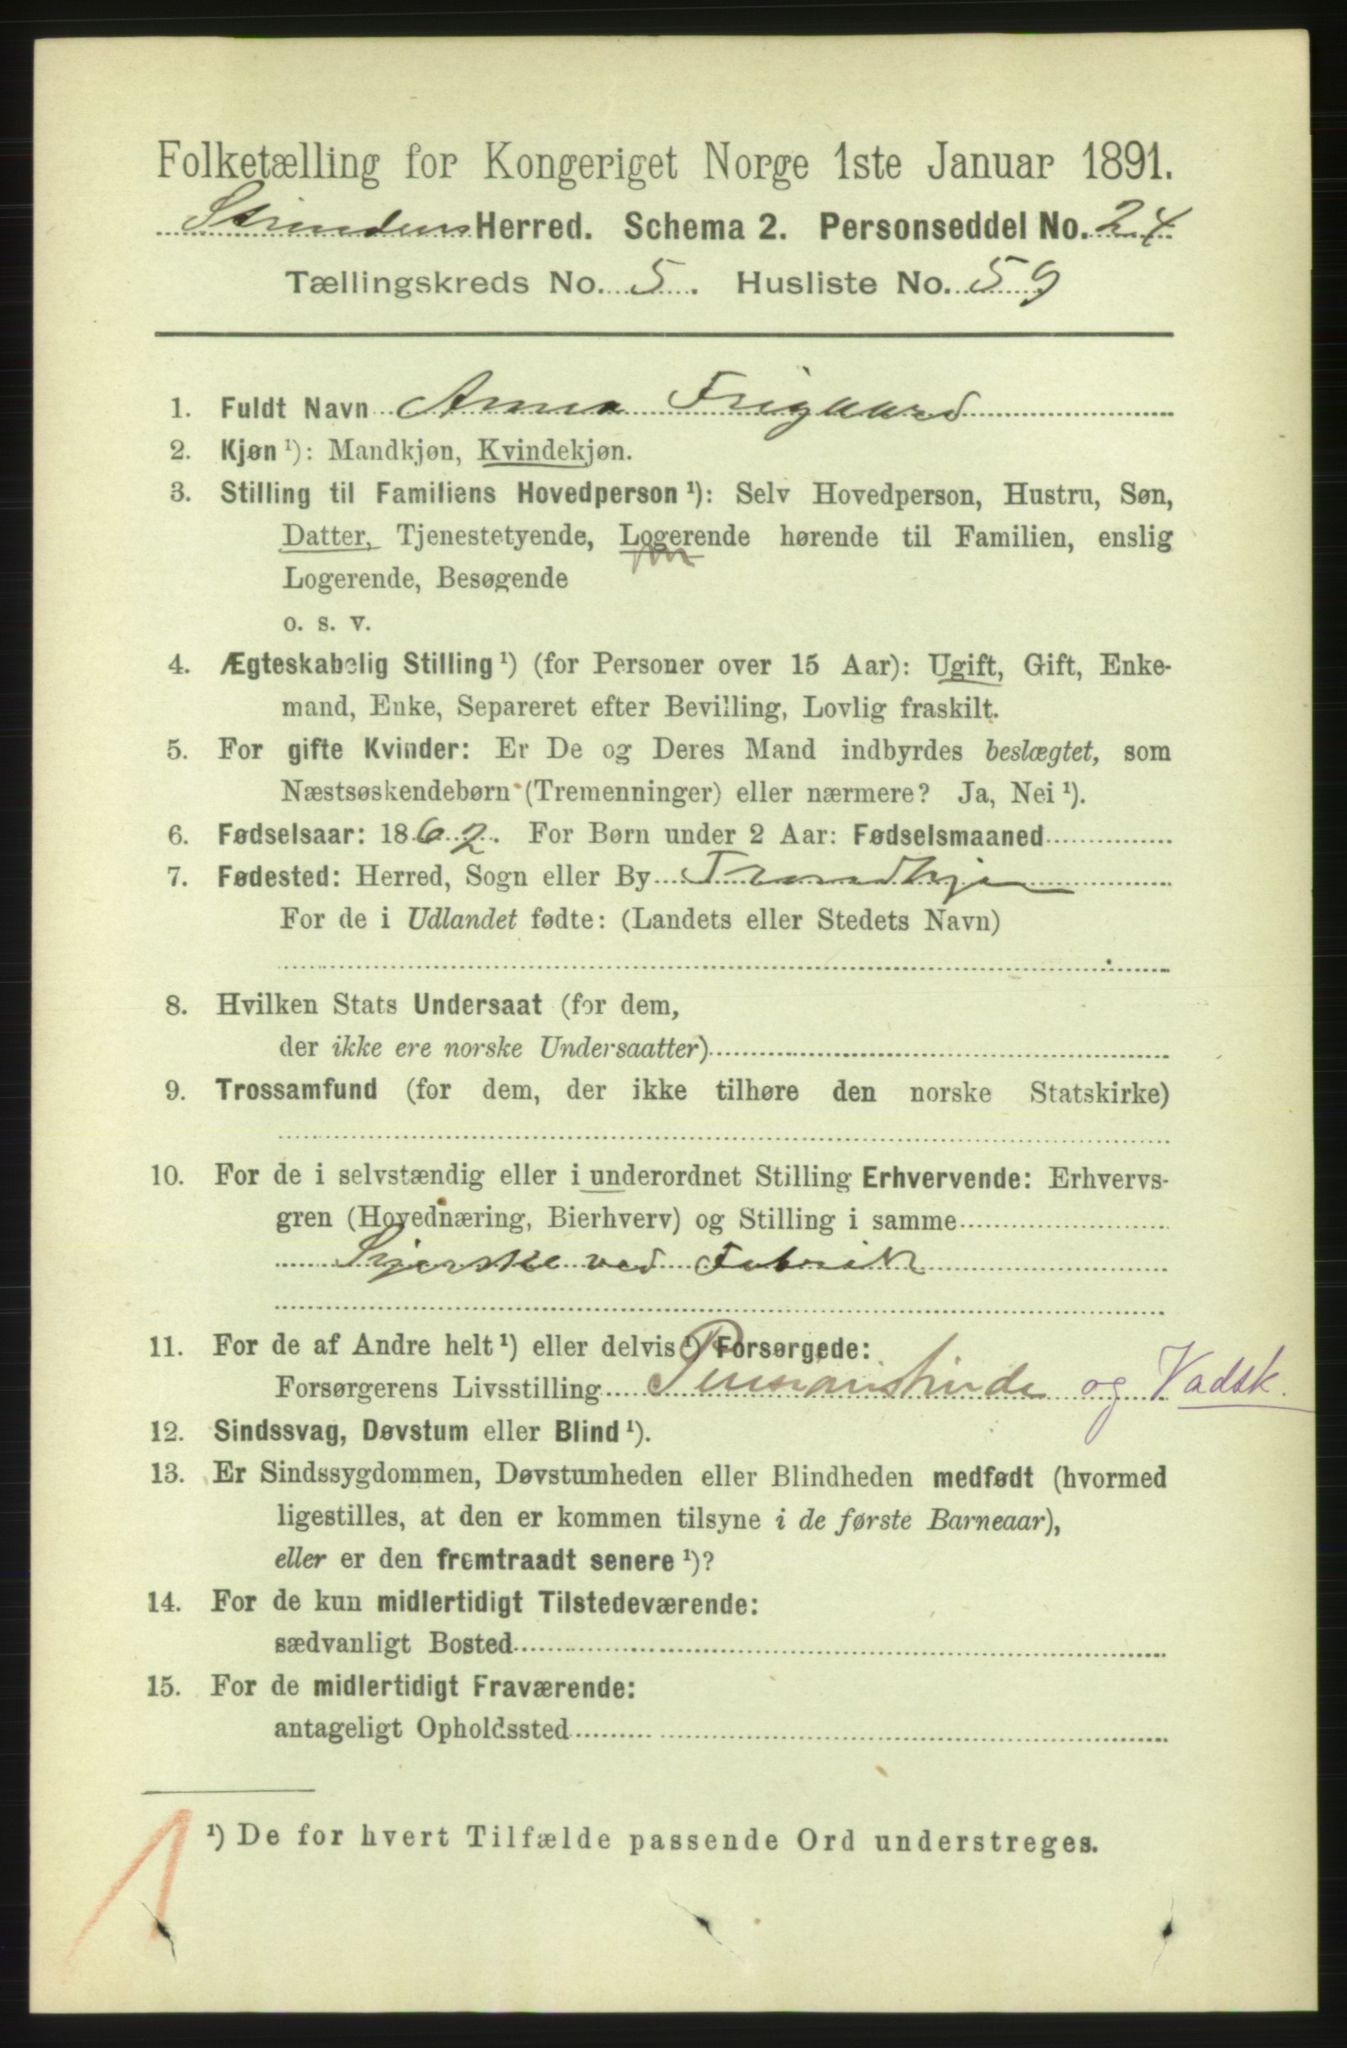 Folketælling for Kongeriget Norge 1ste Januar 1891.
Strindens Herred. Schema 2. Personseddel No. 24
Tællingskreds No. 5. Husliste No. 59
1. Fuldt Navn Anna Frigaard
2. Kjøn ¹): Mandkjøn, Kvindekjøn.
3. Stilling til Familiens Hovedperson ¹): Selv Hovedperson, Hustru, Søn,
Datter, Tjenestetyende, Logerende hørende til Familien, enslig
Logerende, Besøgende
o. s. v.
4. Ægteskabelig Stilling ¹) (for Personer over 15 Aar): Ugift, Gift, Enke-
mand, Enke, Separeret efter Bevilling, Lovlig fraskilt.
5. For gifte Kvinder: Er De og Deres Mand indbyrdes beslægtet, som
Næstsøskendebørn (Tremenninger) eller nærmere? Ja, Nei ¹).
6. Fødselsaar: 1862. For Børn under 2 Aar: Fødselsmaaned
7. Fødested: Herred, Sogn eller By Trondhjem
For de i Udlandet fødte: (Landets eller Stedets Navn)
8. Hvilken Stats Undersaat (for dem,
der ikke ere norske Undersaatter)
9. Trossamfund (for dem, der ikke tilhøre den norske Statskirke)
10. For de i selvstændig eller i underordnet Stilling Erhvervende: Erhvervs-
gren (Hovednæring, Bierhverv) og Stilling i samme
Syerske ved Fabrik
11. For de af Andre helt ¹) eller delvis ¹) Forsørgede:
Forsørgerens Livsstilling Pensionistinde og Vadsk.
12. Sindssvag, Døvstum eller Blind ¹).
13. Er Sindssygdommen, Døvstumheden eller Blindheden medfødt (hvormed
ligestilles, at den er kommen tilsyne i de første Barneaar),
eller er den fremtraadt senere ¹)?
14. For de kun midlertidigt Tilstedeværende:
sædvanligt Bosted
15. For de midlertidigt Fraværende:
antageligt Opholdssted
¹) De for hvert Tilfælde passende Ord understreges.
1